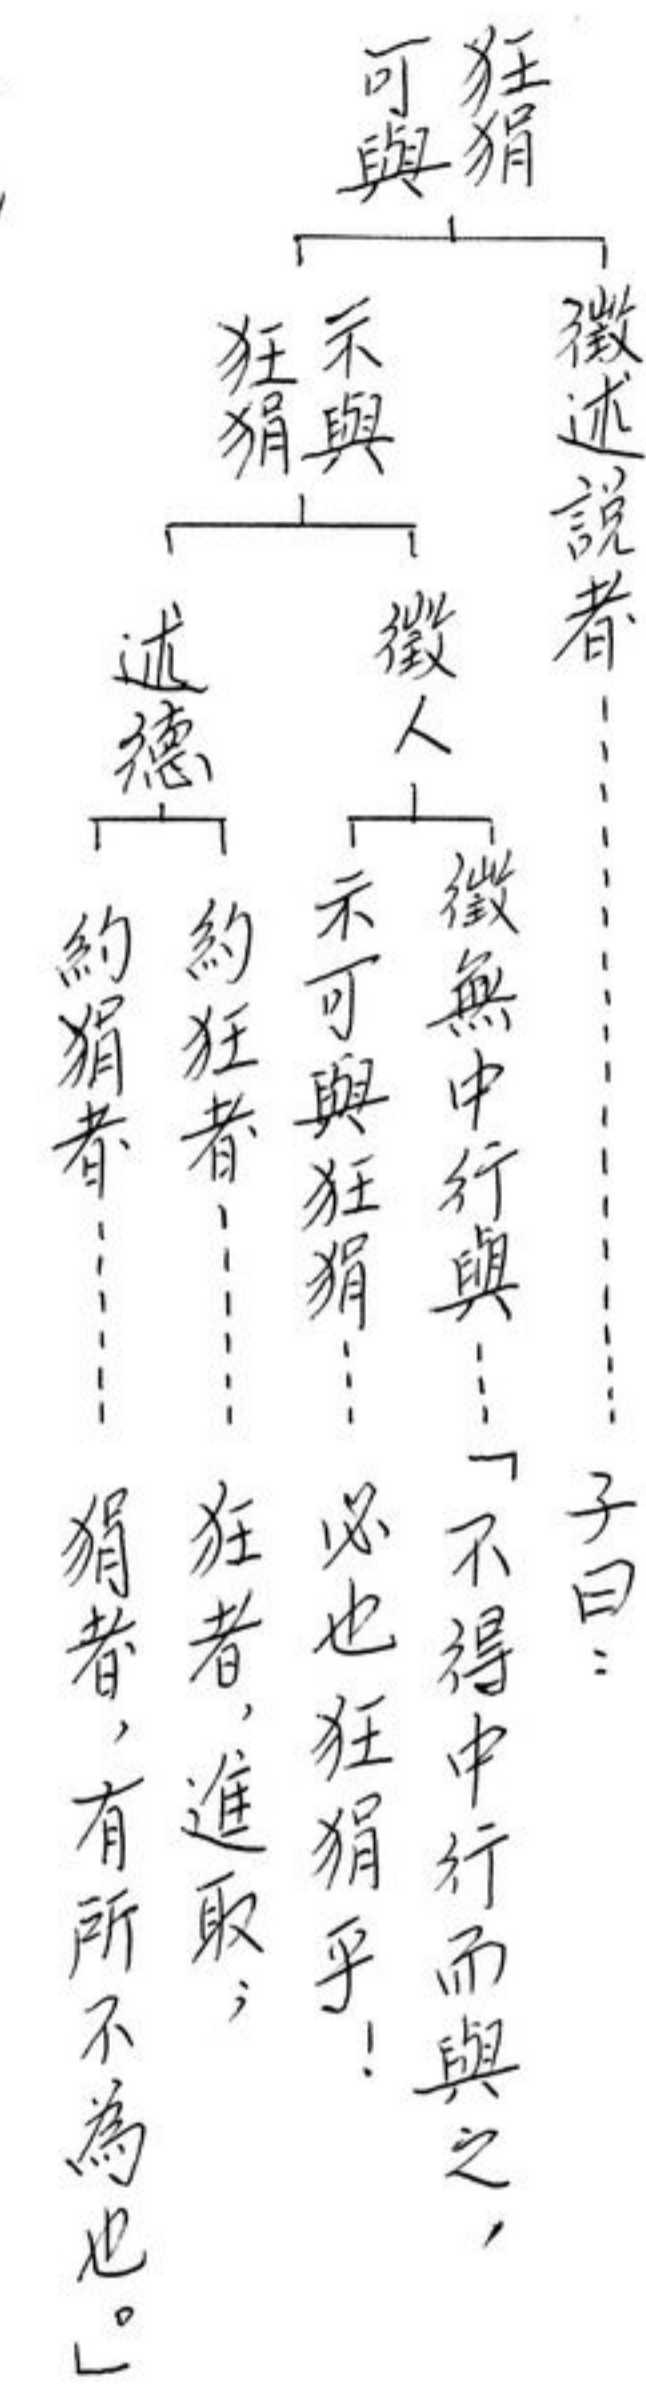 狂狷
可與
徵述說者
子曰：
示與
狂狷
徵人
徵無中行與
「不得中行而與之，
示可與狂狷
必也狂狷乎！
述德
約狂者
狂者，進取；
約狷者
狷者，有所不為也。」